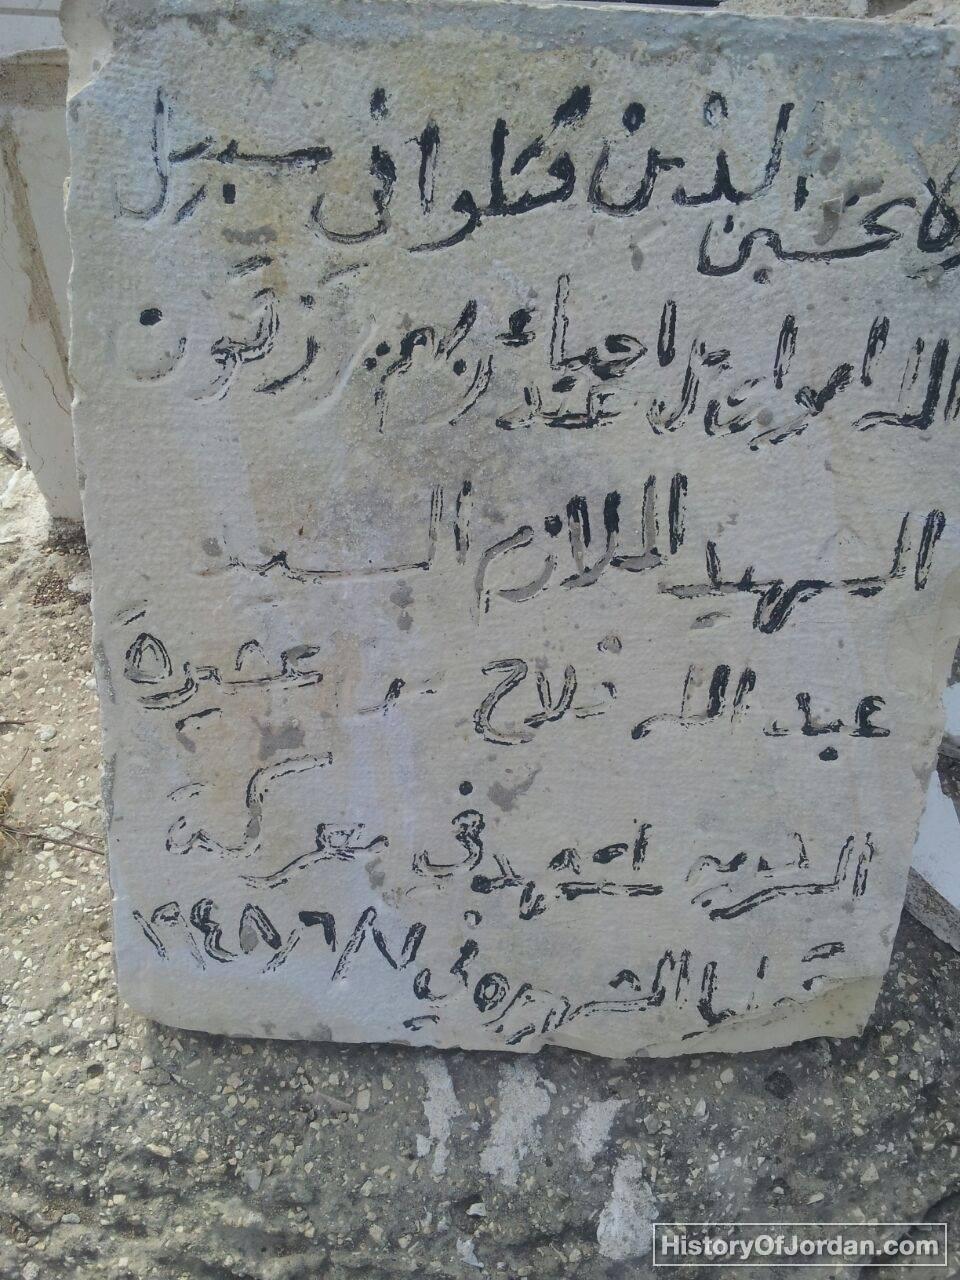 ولا تحسبن الذين قتلوا في سبيل
الله امواتا بل احياء عند ربهم يرزقون
الشهيد الملازم السيد
عبد الله فلاح
استشهد في معركة
في ٧/٦/١٩٤٨
HistoryOfJordan.com